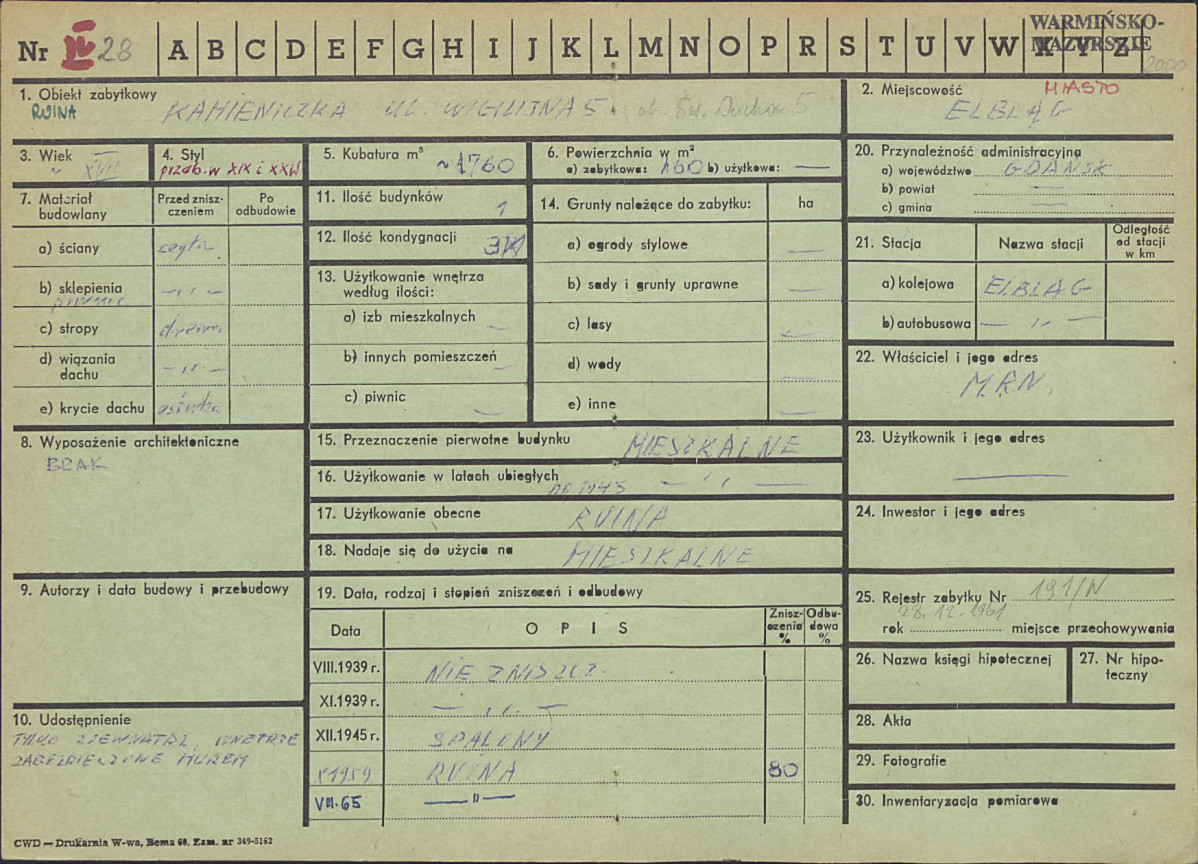 WARMIŃSKO-
MAZURSKIE
2000
Nr 28 A B C D E F G H I J K L M N O P R S T U V W X Y Z
1. Obiekt zabytkowy
RUINA
KAMIENICZKA UL. WIGILIJNA 5 ob. Św. Ducha 5
2. Miejscowość MIASTO
ELBLĄG
3. Wiek
~ XVII
4. Styl
przeb. w XIX i XX W
5. Kubatura m³
~1760
6. Powierzchnia w m²
a) zabytkowa: 160 b) użytkowa: —
20. Przynależność administracyjna
a) województwo GDAŃSK
b) powiat —
c) gmina —
7. Materiał budowlany
Przed znisz-
czeniem
Po
odbudowie
a) ściany cegła
b) sklepienia — ,, —
piwnic
c) stropy drewn.
d) wiązania
dachu — ,, —
e) krycie dachu esówka
11. Ilość budynków 1
12. Ilość kondygnacji
13. Użytkowanie wnętrza
według ilości:
a) izb mieszkalnych —
b) innych pomieszczeń —
c) piwnic —
14. Grunty należące do zabytku: ha
a) ogrody stylowe —
b) sady i grunty uprawne —
c) lasy —
d) wody —
e) inne —
21. Stacja Nazwa stacji
Odległość
od stacji
w km
a) kolejowa ELBLĄG
b) autobusowa — ,, —
22. Właściciel i jego adres
M.R.N.
8. Wyposażenie architektoniczne
BRAK
15. Przeznaczenie pierwotne budynku MIESZKALNE
16. Użytkowanie w latach ubiegłych
do 1945 — ,, —
17. Użytkowanie obecne RUINA
18. Nadaje się do użycia na MIESZKALNE
23. Użytkownik i jego adres
—
24. Inwestor i jego adres
9. Autorzy i data budowy i przebudowy
19. Data, rodzaj i stopień zniszczeń i odbudowy
Data OPIS
Znisz-
czenia
%
Odbu-
dowa
%
VIII.1939 r. NIE ZNISZCZ.
XI.1939 r. — ,, —
XII.1945 r. SPALONY
1959 RUINA 80
VII.65 — " —
25. Rejestr zabytku Nr 191/N
28.12.1961
rok miejsce przechowywania
26. Nazwa księgi hipotecznej
27. Nr hipo-
teczny
28. Akta
29. Fotografie
30. Inwentaryzacja pomiarowa
10. Udostępnienie
TYLKO Z ZEWNĄTRZ, WNĘTRZE
ZABEZPIECZONE MUREM
CWD — Drukarnia W-wa, Bema 60. Zam. nr 349-5162